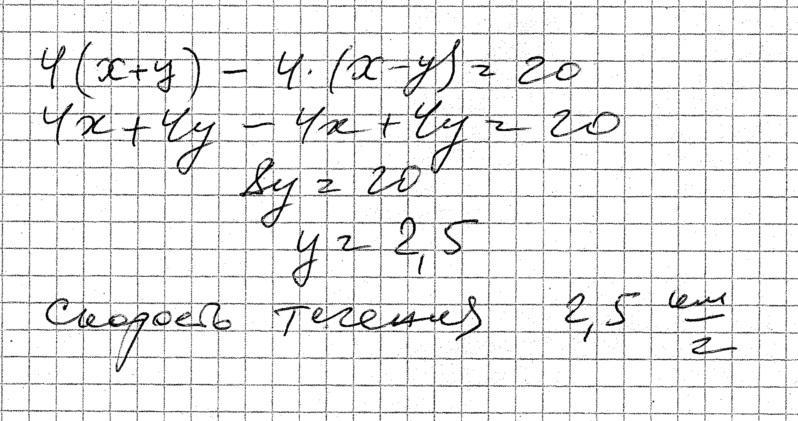 4(x+y) - 4·(x-y) = 20
4x + 4y - 4x + 4y = 20
8y = 20
y = 2,5
Скорость течения 2,5 км/ч